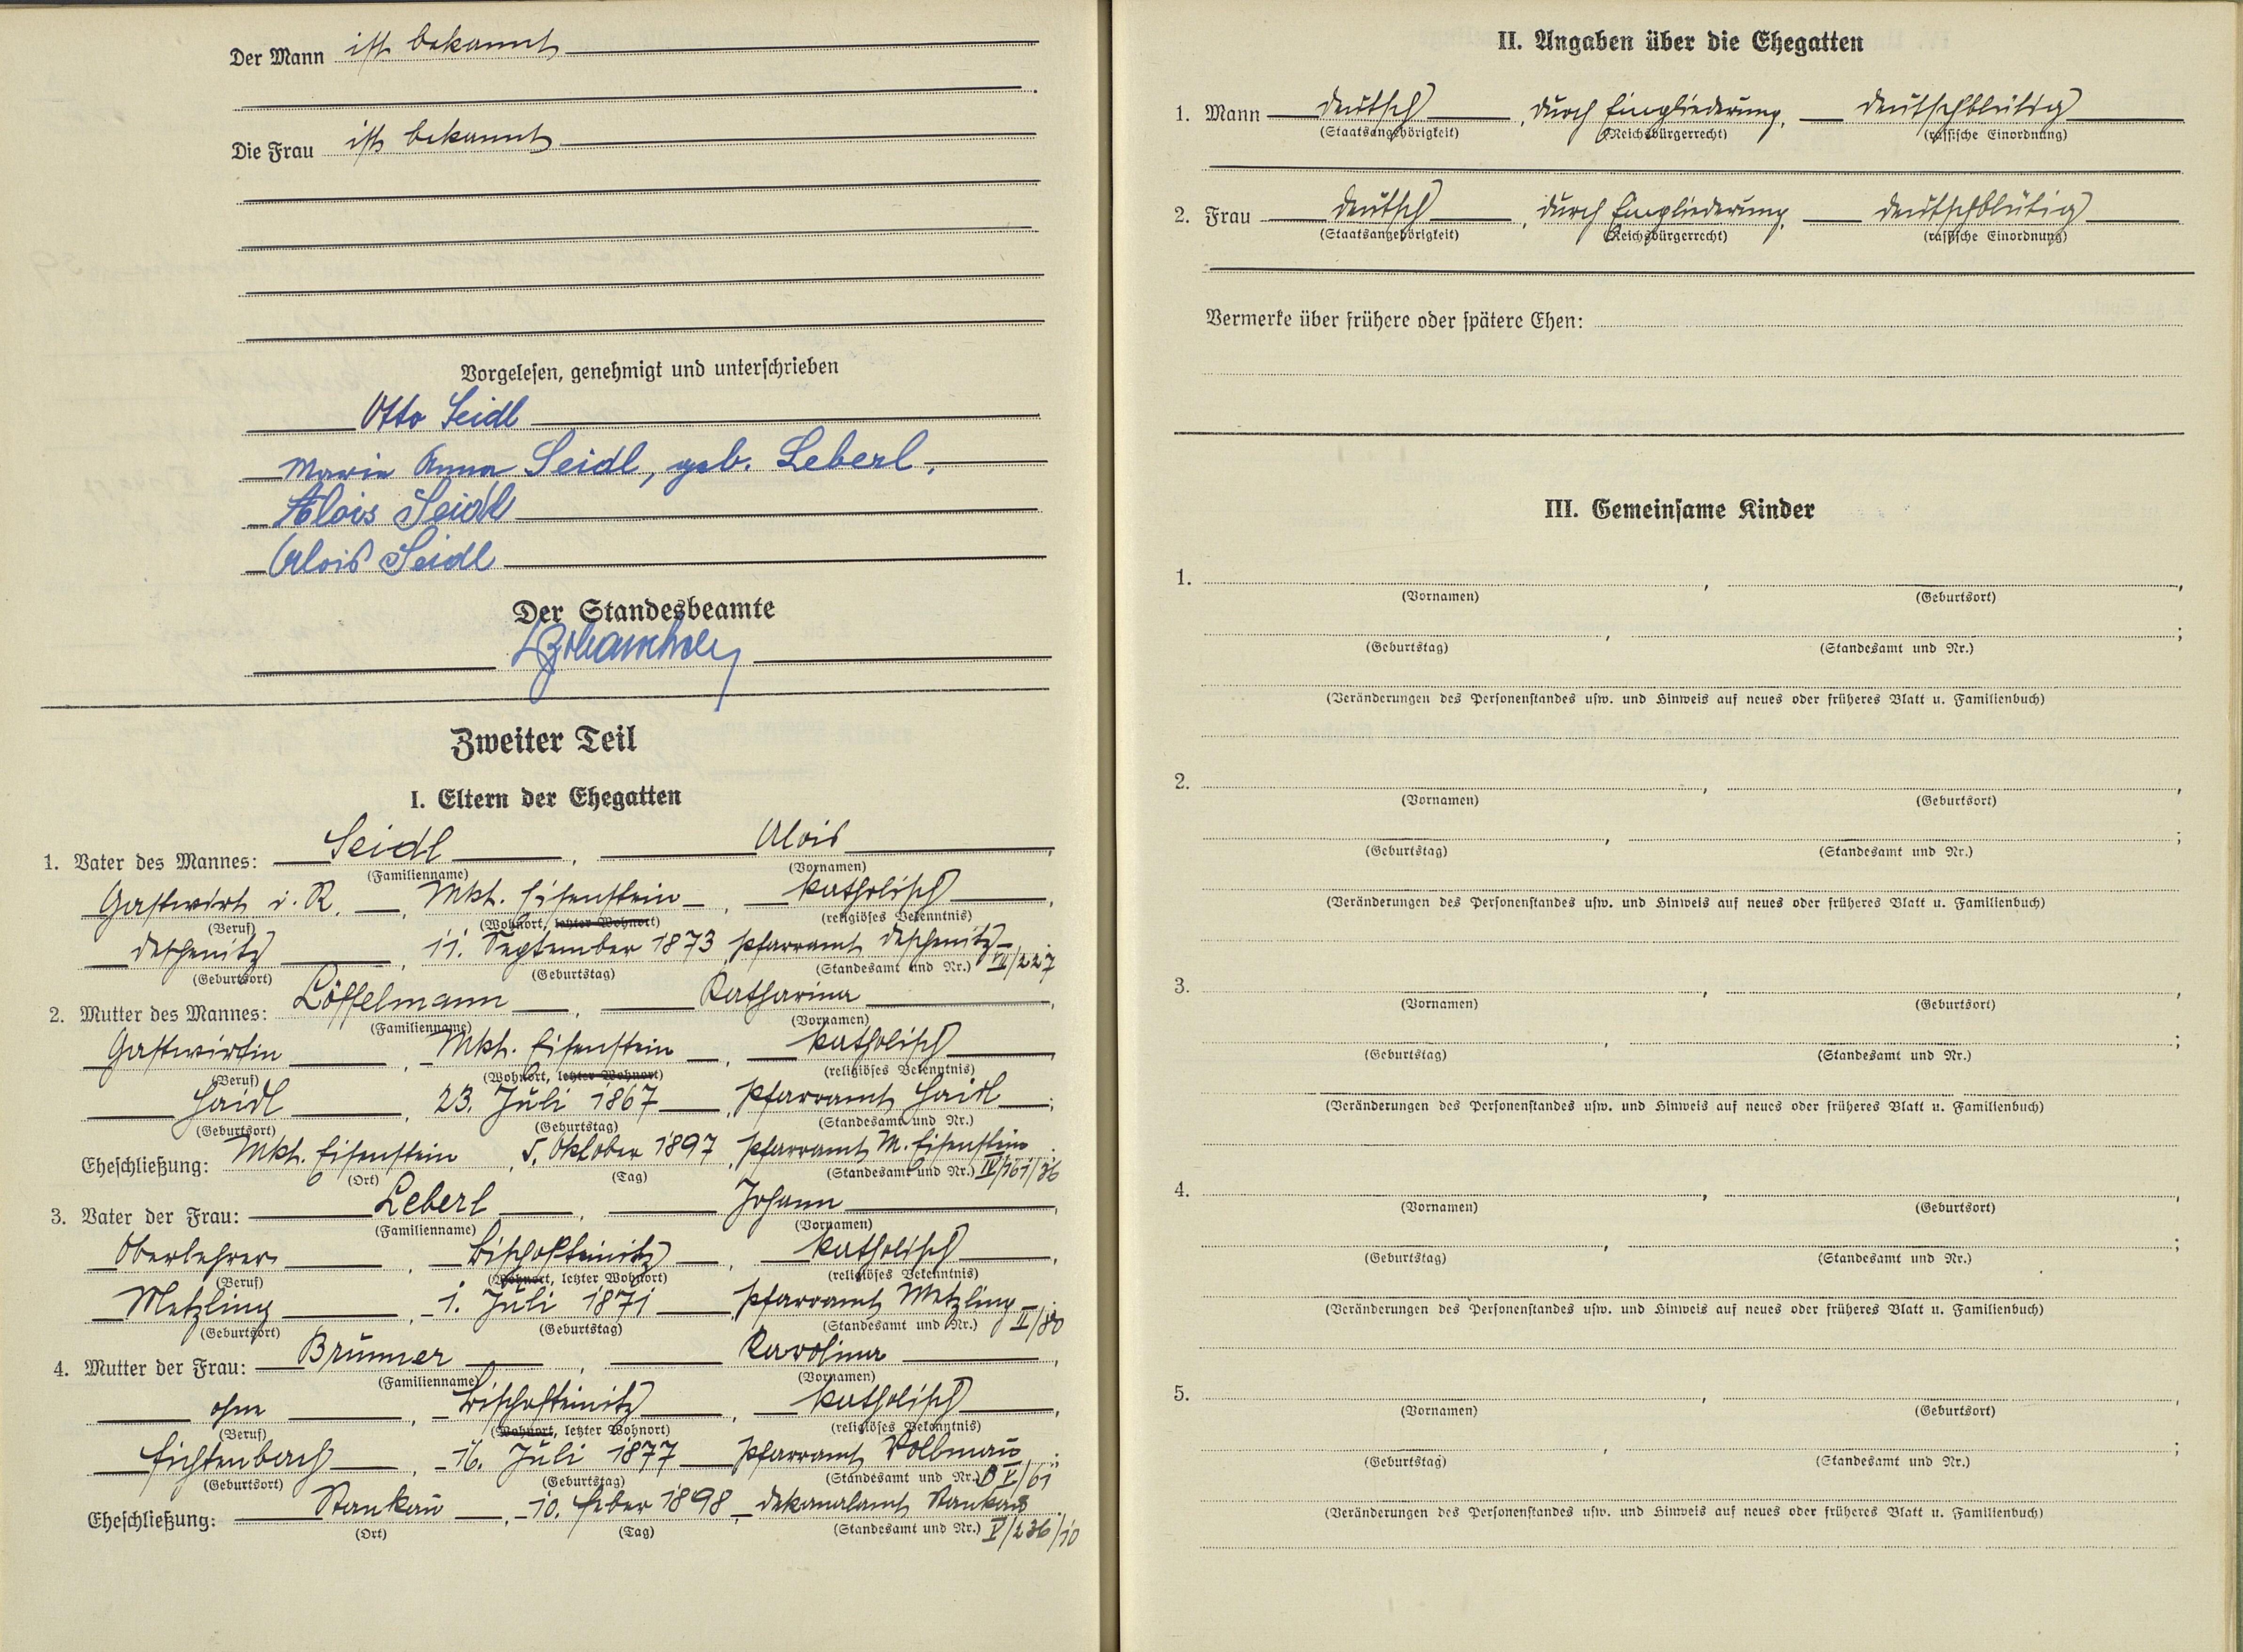 Der Mann ist bekannt
Die Frau ist bekannt
Vorgelesen, genehmigt und unterschrieben
Otto Seidl
Marie Anna Seidl, geb. Leberl.
Alois Seidl
Alois Seidl
Der Standesbeamte
Zweiter Teil
I. Eltern der Ehegatten
1. Vater des Mannes: Seidl, Alois,
(Familienname) (Vornamen)
Gastwirt i. R., Mkt. Eisenstein, katholisch,
(Beruf) (Wohnort, letzter Wohnort) (religiöses Bekenntnis)
Deschenitz, 11. September 1873, Pfarramt Deschenitz
(Geburtsort) (Geburtstag) (Standesamt und Nr.) /227
2. Mutter des Mannes: Löffelmann, Katharina,
(Familienname) (Vornamen)
Gastwirtin, Mkt. Eisenstein, katholisch,
(Beruf) (Wohnort, letzter Wohnort) (religiöses Bekenntnis)
Haidl, 23. Juli 1867, Pfarramt Haidl;
(Geburtsort) (Geburtstag) (Standesamt und Nr.)
Eheschließung: Mkt. Eisenstein, 5. Oktober 1897, Pfarramt M. Eisenstein.
(Ort) (Tag) (Standesamt und Nr.) IV/161/36
3. Vater der Frau: Leberl, Johann,
(Familienname) (Vornamen)
Oberlehrer, Bischofteinitz, katholisch,
(Beruf) (Wohnort, letzter Wohnort) (religiöses Bekenntnis)
Metzling, 1. Juli 1871, Pfarramt Metzling;
(Geburtsort) (Geburtstag) (Standesamt und Nr.) II/80
4. Mutter der Frau: Brunner, Karolina,
(Familienname) (Vornamen)
ohne, Bischofteinitz, katholisch,
(Beruf) (Wohnort, letzter Wohnort) (religiöses Bekenntnis)
Fichtenbach, 16. Juli 1877, Pfarramt Vollmau;
(Geburtsort) (Geburtstag) (Standesamt und Nr.) V/61
Eheschließung: Stankau, 10. Feber 1898, Dekanalamt Stankau
(Ort) (Tag) (Standesamt und Nr.) V/236/10
II. Angaben über die Ehegatten
1. Mann deutsch, durch Eingliederung, deutschblütig
(Staatsangehörigkeit) (Reichsbürgerrecht) (rassische Einordnung)
2. Frau deutsch, durch Eingliederung, deutschblütig
(Staatsangehörigkeit) (Reichsbürgerrecht) (rassische Einordnung)
Vermerke über frühere oder spätere Ehen:
III. Gemeinsame Kinder
1. , ,
(Vornamen) (Geburtsort)
, ;
(Geburtstag) (Standesamt und Nr.)
(Veränderungen des Personenstandes usw. und Hinweis auf neues oder früheres Blatt u. Familienbuch)
2. , ,
(Vornamen) (Geburtsort)
, ;
(Geburtstag) (Standesamt und Nr.)
(Veränderungen des Personenstandes usw. und Hinweis auf neues oder früheres Blatt u. Familienbuch)
3. , ,
(Vornamen) (Geburtsort)
, ;
(Geburtstag) (Standesamt und Nr.)
(Veränderungen des Personenstandes usw. und Hinweis auf neues oder früheres Blatt u. Familienbuch)
4. , ,
(Vornamen) (Geburtsort)
, ;
(Geburtstag) (Standesamt und Nr.)
(Veränderungen des Personenstandes usw. und Hinweis auf neues oder früheres Blatt u. Familienbuch)
5. , ,
(Vornamen) (Geburtsort)
, ;
(Geburtstag) (Standesamt und Nr.)
(Veränderungen des Personenstandes usw. und Hinweis auf neues oder früheres Blatt u. Familienbuch)